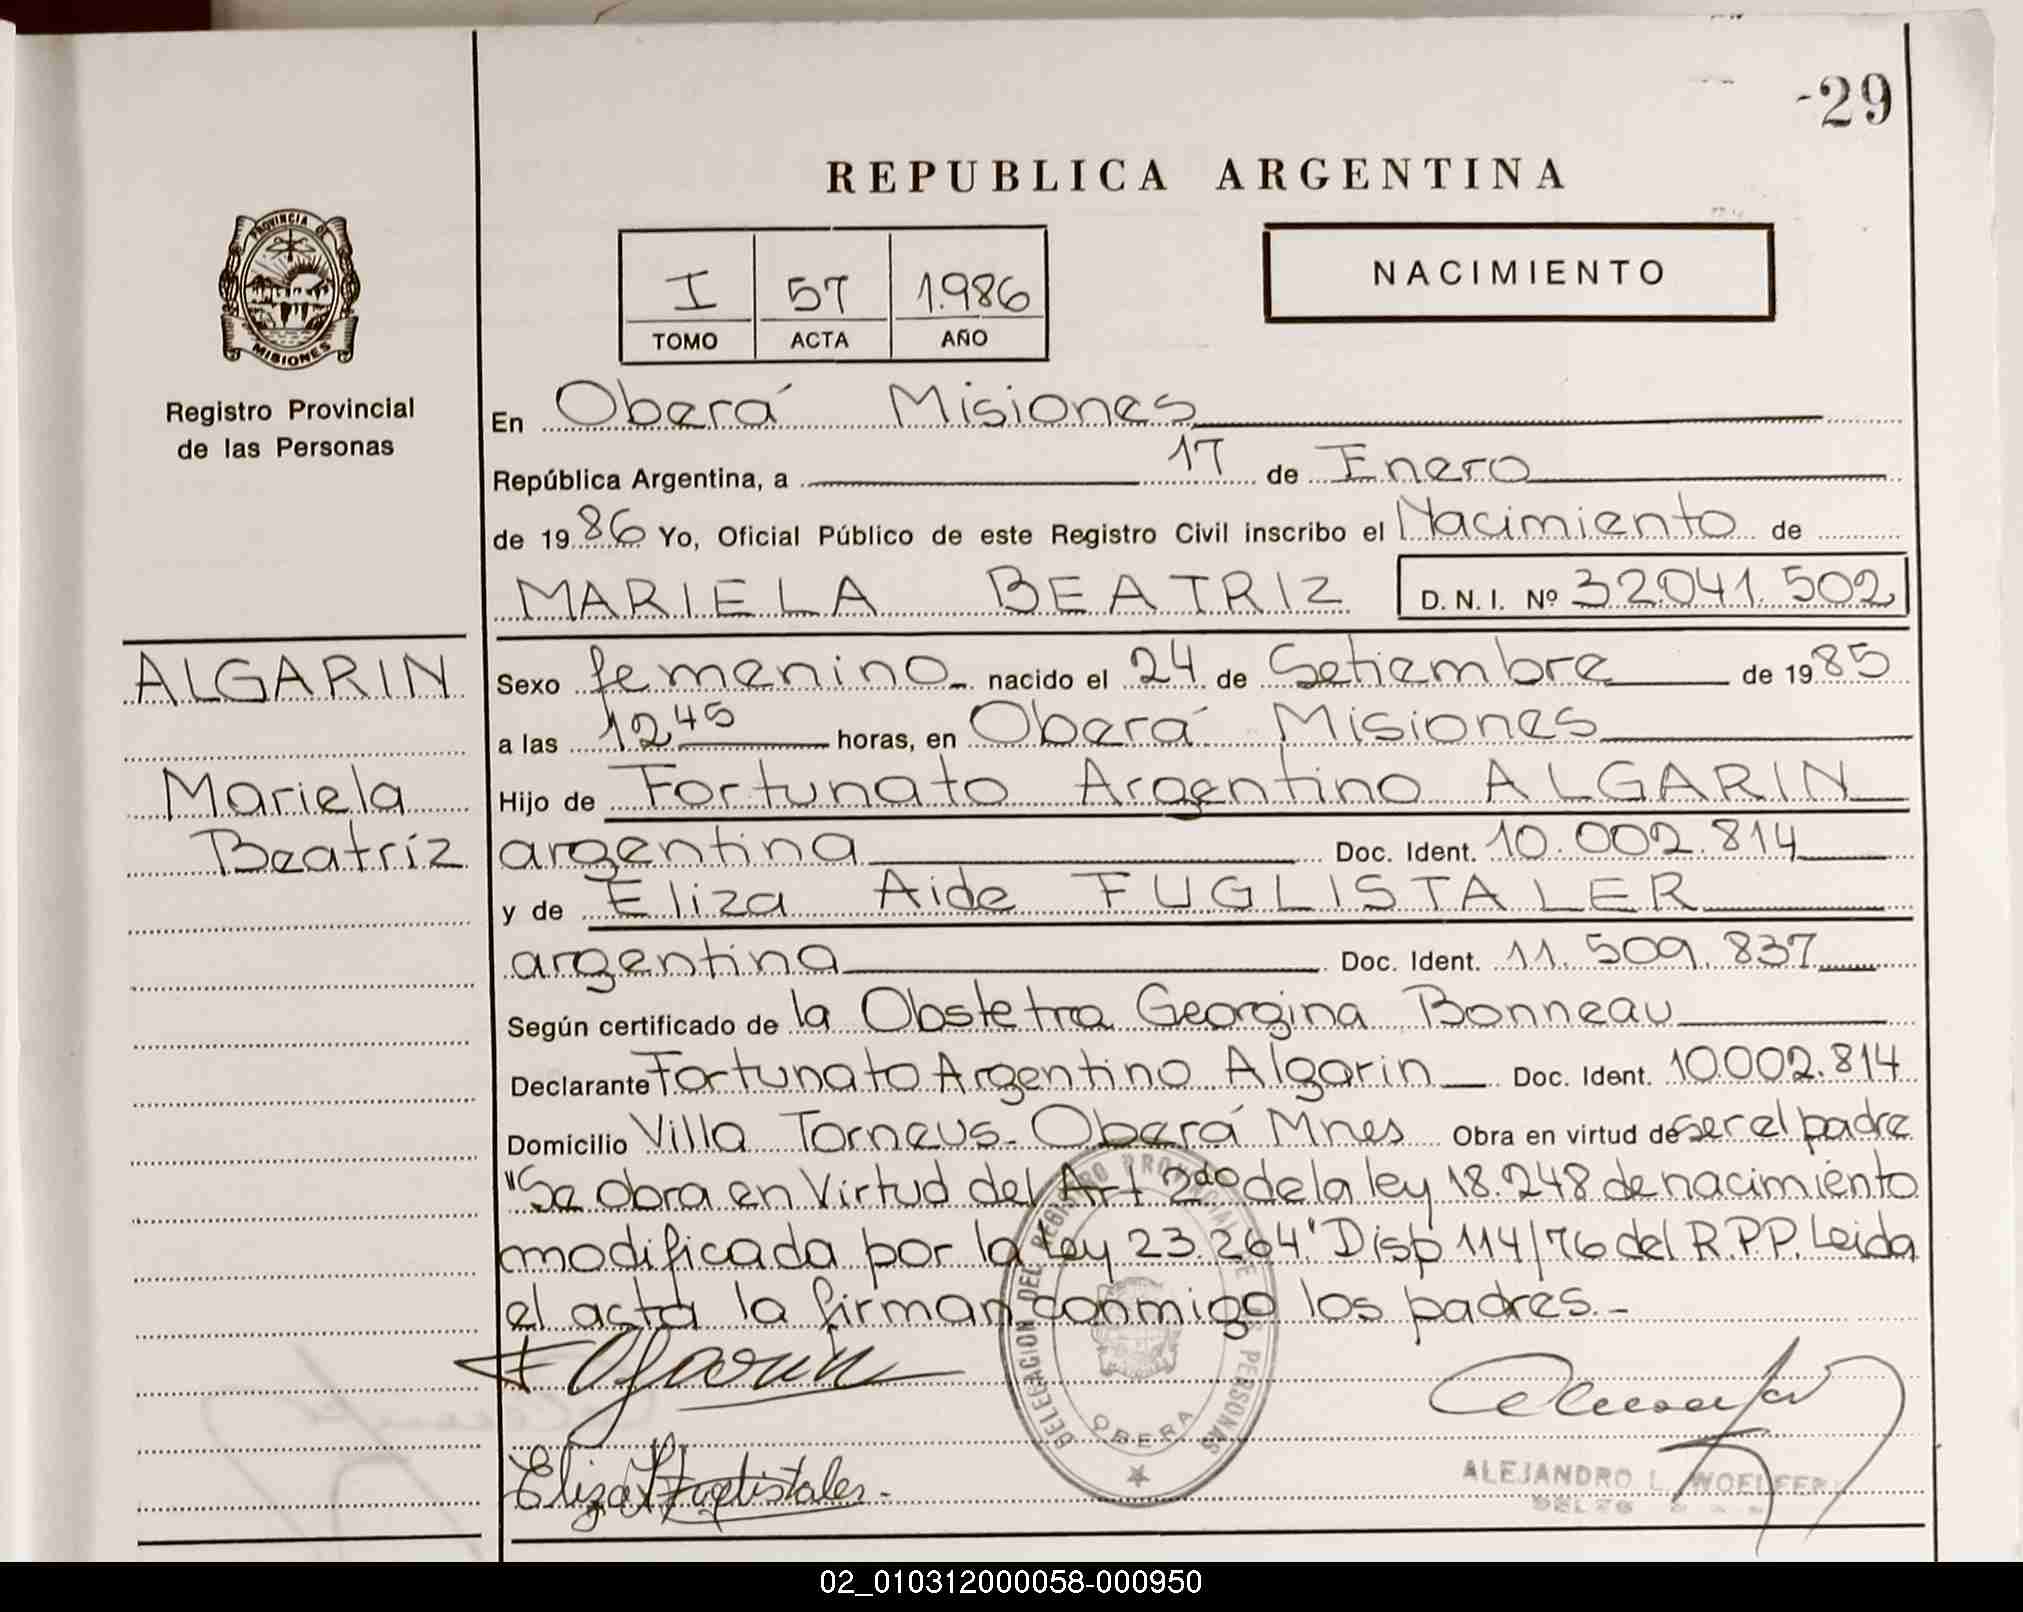 -29
REPUBLICA ARGENTINA
PROVINCIA DE
MISIONES
Registro Provincial
de las Personas
I 57 1.986
TOMO ACTA AÑO
NACIMIENTO
En Oberá Misiones
República Argentina, a 17 de Enero
de 1986 Yo, Oficial Público de este Registro Civil inscribo el Nacimiento de
MARIELA BEATRIZ D. N. I. Nº 32.041.502
ALGARIN
Mariela
Beatríz
Sexo femenino nacido el 24 de Setiembre de 1985
a las 12,45 horas, en Oberá Misiones
Hijo de Fortunato Argentino ALGARIN
argentina Doc. Ident. 10.002.814
y de Eliza Aide FUGLISTALER
argentina Doc. Ident. 11.509.837
Según certificado de la Obstetra Georgina Bonneau
Declarante Fortunato Argentino Algarin Doc. Ident. 10.002.814
Domicilio Villa Torneus- Oberá Mnes Obra en virtud de ser el padre
"Se obra en Virtud del Art 2do de la ley 18.248 de nacimiento
modificada por la Ley 23.264" Disp 114/76 del R.P.P. Leida
el acta la firman conmigo los padres.-
DELEGACION DEL REGISTRO PROVINCIAL DE LAS PERSONAS
OBERA
ALEJANDRO L. WOELFER
02_010312000058-000950